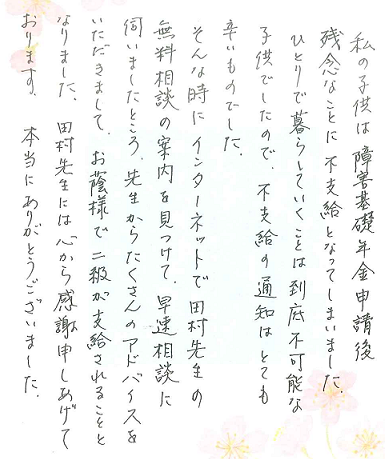 私の子供は 障害基礎年金申請後
残念なことに 不支給となってしまいました。
ひとりで暮らしていくことは 到底不可能な
子供でしたので、不支給の通知は とても
辛いものでした。
そんな時に インターネットで 田村先生の
無料相談の案内を見つけて、早速相談に
伺いましたところ、先生からたくさんのアドバイスを
いただきまして、お蔭様で 二級が支給されることと
なりました。 田村先生には 心から感謝申しあげて
おります。 本当にありがとうございました。